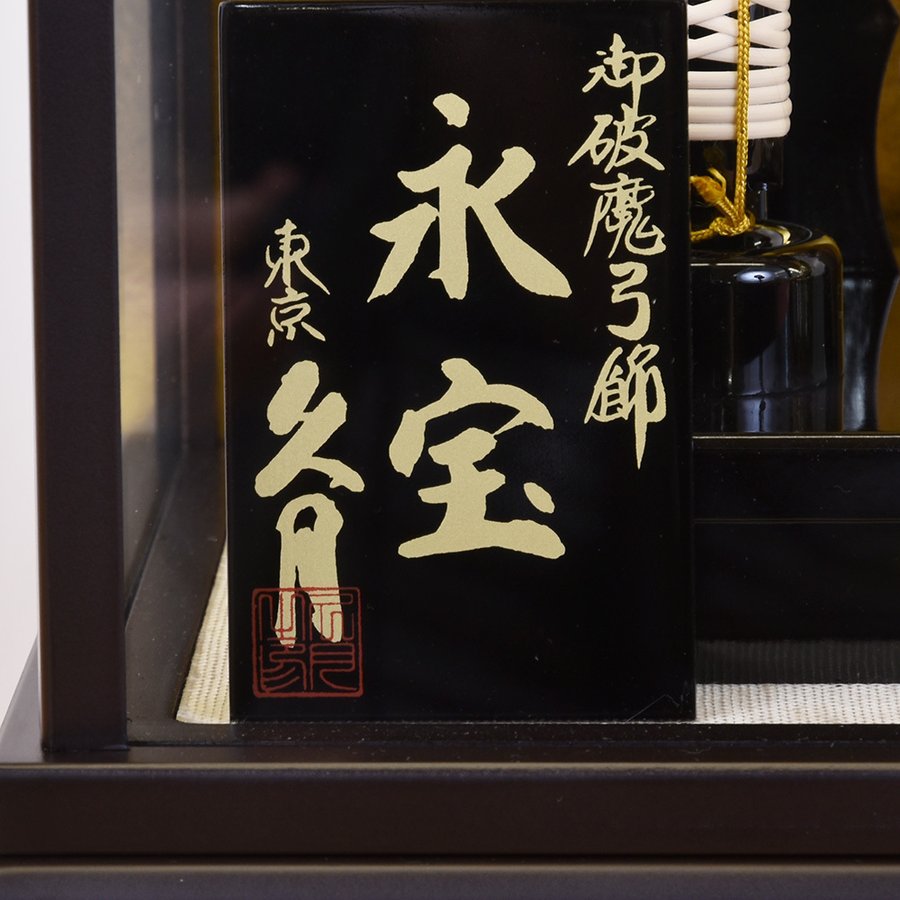 御破魔弓飾
永宝
東京久月